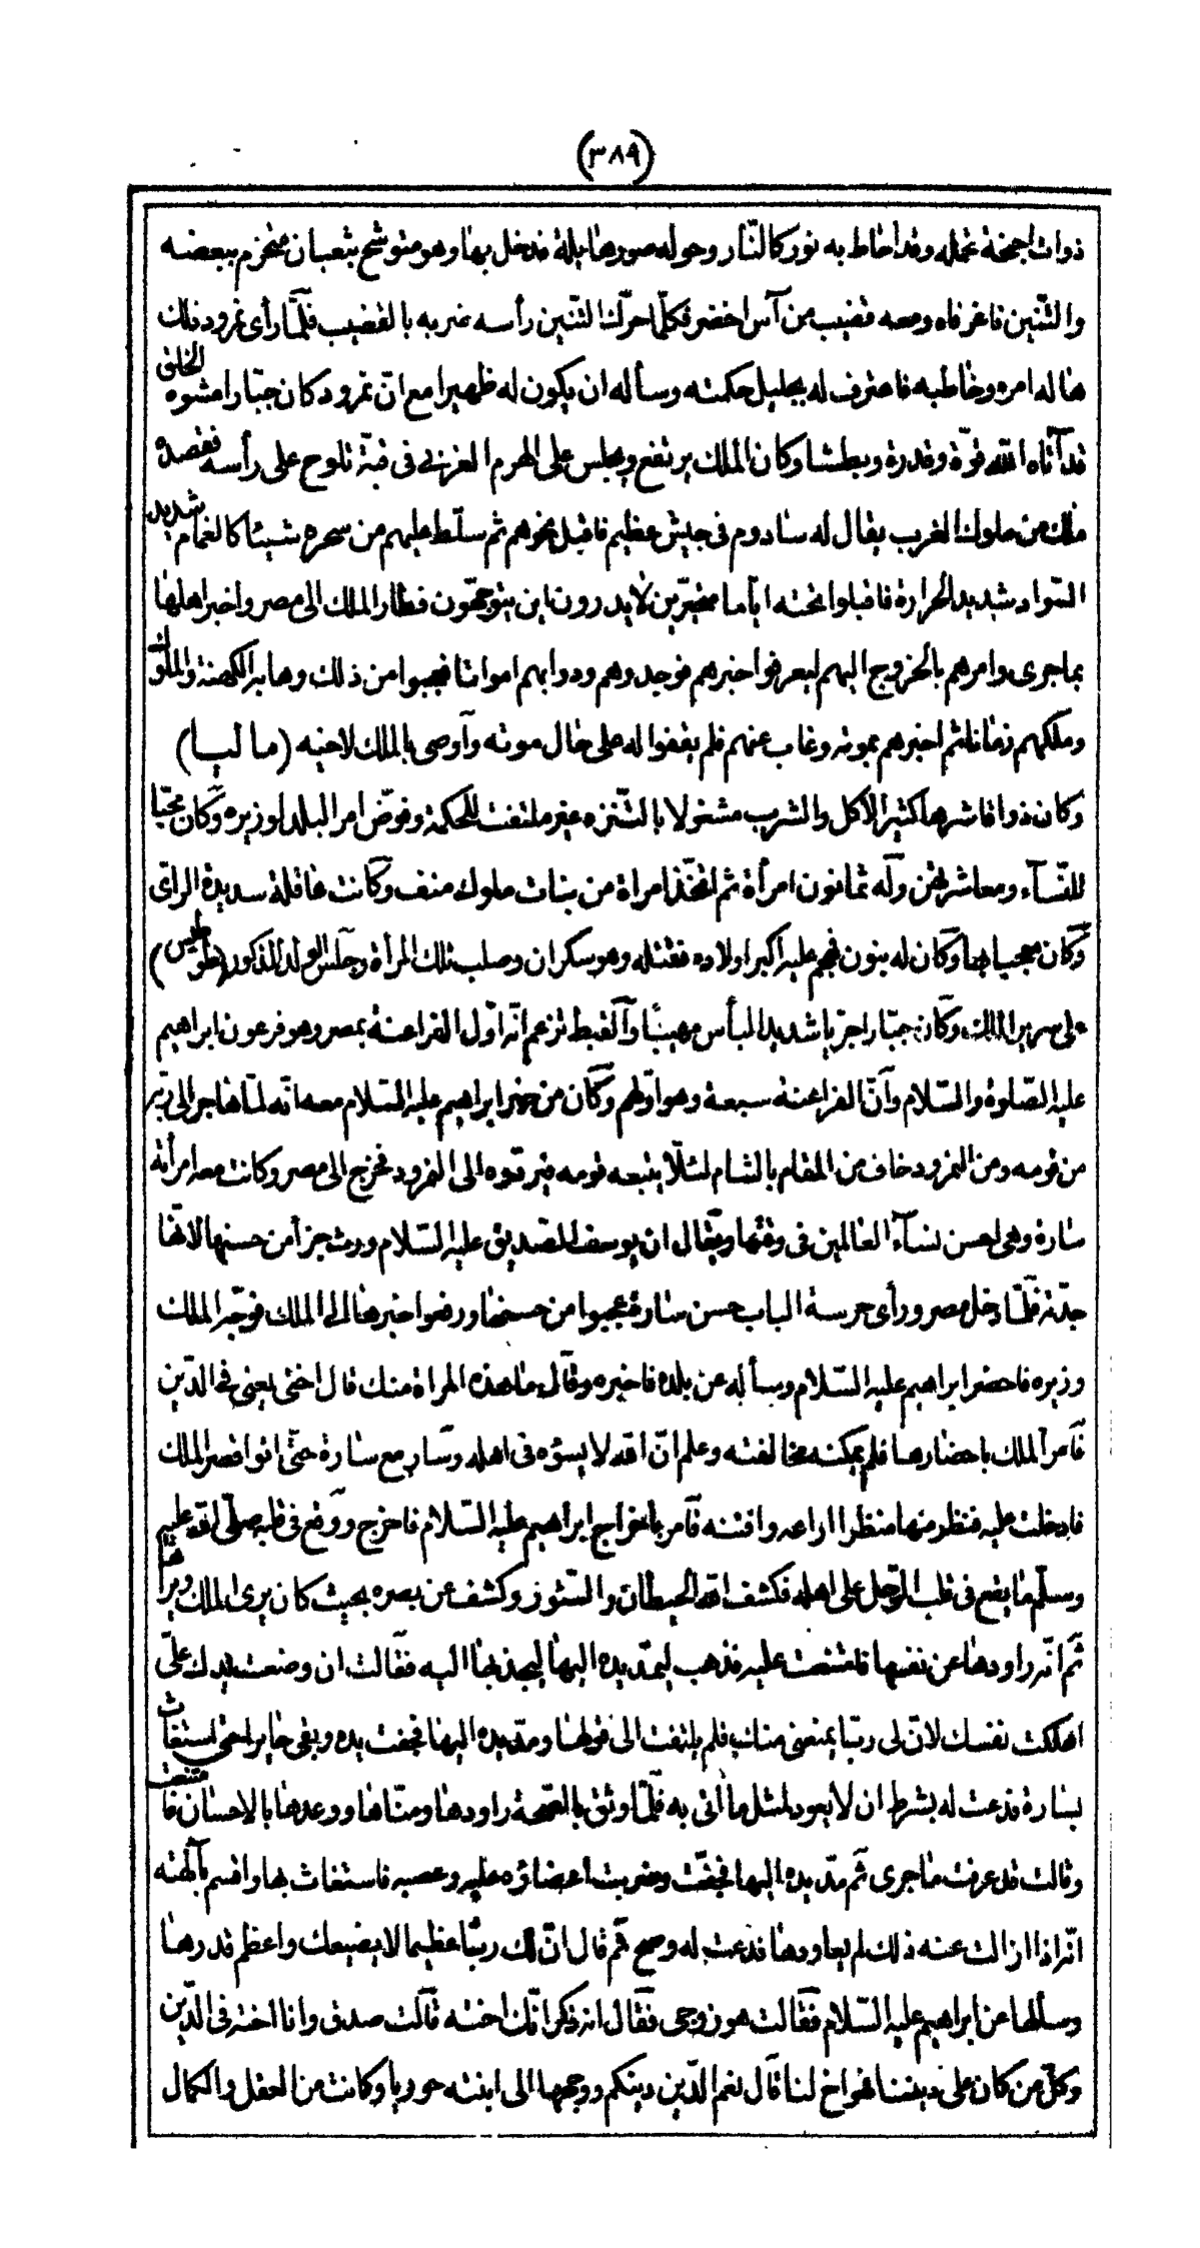 (٣٨٩)
ذوات اجنحة تحمله وقد احاط به نور كالنّار وحوله صور هايلة فدخل بها وهو متوشح بثعبان متحزم ببعضه
والتّنين فاغر فاه ومعه قضيب من آس اخضر فكلّما حرّك التّنين رأسه ضربه بالقضيب فلمّا رأى نمرود ذلك
هاله امره وخاطبه فاعترف له بجليل حكمته وسأله ان يكون له ظهيرا مع انّ نمرود كان جبّارا مشوه الخلق
قد آتاه الله قوّة وقدرة وبطشا وكان الملك يرتفع ويجلس على الهرم الغربى فى قبّة تلوح على رأسه فقصده
ملك من ملوك الغرب يقال له سادوم فى جيش عظيم فاقبل نحوهم ثم سلّط عليهم من سحره شيئا كالغمام شديد
السّواد شديد الحرارة فاقبلوا تحته ايّاما متحيّرين لا يدرون اين يتوجّهون فطار الملك الى مصر واخبر اهلها
بما جرى وامرهم بالخروج اليهم ليعرفوا خبرهم فوجدوهم ودوابهم امواتا فعجبوا من ذلك وهابه الكهنة والملوك
وملكهم زمانا ثم اخبرهم بموته وغاب عنهم فلم يقفوا له على حال موته وأوصى بالملك لاخيه (ماليا)
وكان ذواقا شرها كثير الاكل والشرب مشغولا بالتّنزه غير ملتفت للحكمة وفوّض امر البلد لوزيره وكان محبّا
للنّسآء ومعاشرتهن وله ثمانون امرأة ثم اتّخذ امراة من بنات ملوك منف وكانت عاقلة سديدة الرائى
وكان معجبا بها وكان له بنون فهجم عليه اكبر اولاده فقتله وهو سكران وصلب تلك المرأة وجلس الولد المذكور (طوطيس)
على سرير الملك وكان جبّارا جريا شديد البأس مهيبًا والقبط تزعم انّه اوّل الفراعنة بمصر وهو فرعون ابراهيم
عليه الصّلوة والسّلام وانّ الفراعنة سبعة وهو اوّلهم وكان من خبر ابراهيم عليه السّلام معه انّه لمّا هاجر الى ربّه
من قومه ومن النمرود خاف من المقام بالشام لئلّا يتبعه قومه فيردّوه الى النمرود فخرج الى مصر وكانت معه امرأته
سارة وهى احسن نسآء العالمين فى وقتها ويقال ان يوسف الصديق عليه السّلام ورث جزأ من حسنها لانّها
جدّته فلمّا دخل مصر ورأى حرسة الباب حسن سارة عجبوا من حسنها ورفعوا خبرها الى الملك فوجّه الملك
وزيره فاحضر ابراهيم عليه السّلام وسأله عن بلده فاخبره وقال ما هذه المراة منك قال اختى يعنى فى الدّين
فأمر الملك باحضارها فلم يمكنه مخالفته وعلم انّ الله لا يسؤه فى اهله وسار مع سارة حتّى اتوا قصر الملك
فادخلت عليه فنظر منها منظرا اراعه وافتنه فأمر باخراج ابراهيم عليه السّلام فاخرج ووقع فى قلبه صلّى الله عليه
وسلّم ما يقع فى قلب الرّجل على اهله فكشف الله الحيطان والستور وكشف عن بصره بحيث كان يرى الملك ويراها
ثم انّه راودها عن نفسها فامتنعت عليه فذهب ليمدّ يده اليها ليجذبها اليه فقالت ان وضعت يدك علىّ
اهلكت نفسك لانّ لى ربّا يمنعنى منك فلم يلتفت الى قولها ومدّ يده اليها فجفت يده وبقى حايرا حتى استغاث
بسارة فدعت له بشرط ان لا يعود لمثل ما اتى به فلمّا وثق بالصّحة راودها ومنّاها ووعدها بالاحسان فامتنعت
وقالت قد عرفت ما جرى ثم مدّ يده اليها فجفّت وضربت اعضاؤه عليه وعصبه فاستغاث بها واقسم بآلهته
انّه اذا ازالت عنه ذلك لم يعاودها فدعت له وصح ثم قال انّ لك ربّا عظيما لا يضيعك واعظم قدرها
وسألها عن ابراهيم عليه السّلام فقالت هو زوجى فقال انه ذكر انّك اخته قالت صدق وانا اخته فى الدّين
وكلّ من كان على ديننا فهو اخ لنا قال نعم الدّين دينكم ووجهها الى ابنته حوريا وكانت من العقل والكمال